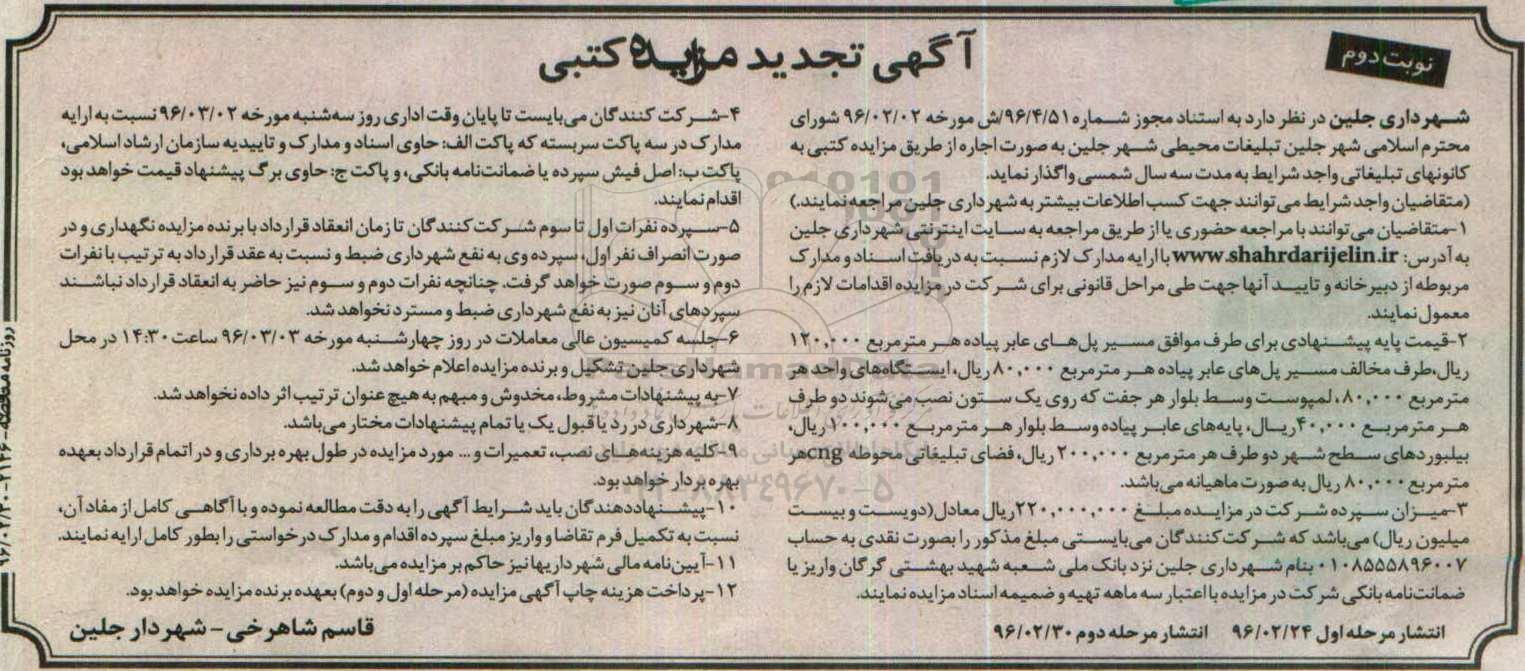 نوبت دوم
آگهی تجدید مزایده کتبی
شهرداری جلین در نظر دارد به استناد مجوز شماره ۹۶/۴/۵۱/ش مورخه ۹۶/۰۲/۰۲ شورای
محترم اسلامی شهر جلین تبلیغات محیطی شهر جلین به صورت اجاره از طریق مزایده کتبی به
کانونهای تبلیغاتی واجد شرایط به مدت سه سال شمسی واگذار نماید.
(متقاضیان واجد شرایط می توانند جهت کسب اطلاعات بیشتر به شهرداری جلین مراجعه نمایند.)
۱-متقاضیان می توانند با مراجعه حضوری یا از طریق مراجعه به سایت اینترنتی شهرداری جلین
به آدرس: www.shahrdarijelin.ir با ارایه مدارک لازم نسبت به دریافت اسناد و مدارک
مربوطه از دبیرخانه و تایید آنها جهت طی مراحل قانونی برای شرکت در مزایده اقدامات لازم را
معمول نمایند.
۲-قیمت پایه پیشنهادی برای طرف موافق مسیر پل‌های عابر پیاده هر مترمربع ۱۲۰,۰۰۰
ریال،طرف مخالف مسیر پل‌های عابر پیاده هر مترمربع ۸۰,۰۰۰ ریال، ایستگاه‌های واحد هر
مترمربع ۸۰,۰۰۰، لمپوست وسط بلوار هر جفت که روی یک ستون نصب می‌شوند دو طرف
هر مترمربع ۴۰,۰۰۰ریال، پایه‌های عابر پیاده وسط بلوار هر مترمربع ۱۰۰,۰۰۰ ریال،
بیلبوردهای سطح شهر دو طرف هر مترمربع ۲۰۰,۰۰۰ ریال، فضای تبلیغاتی محوطه cng هر
مترمربع ۸۰,۰۰۰ ریال به صورت ماهیانه می‌باشد.
۳-میزان سپرده شرکت در مزایده مبلغ ۲۲۰,۰۰۰,۰۰۰ریال معادل(دویست و بیست
میلیون ریال) می‌باشد که شرکت‌کنندگان می‌بایستی مبلغ مذکور را بصورت نقدی به حساب
۰۱۰۸۵۵۵۸۹۶۰۰۷ بنام شهرداری جلین نزد بانک ملی شعبه شهید بهشتی گرگان واریز یا
ضمانت‌نامه بانکی شرکت در مزایده با اعتبار سه ماهه تهیه و ضمیمه اسناد مزایده نمایند.
انتشار مرحله اول ۹۶/۰۲/۲۴ انتشار مرحله دوم ۹۶/۰۲/۳۰
۴-شرکت کنندگان می‌بایست تا پایان وقت اداری روز سه‌شنبه مورخه ۹۶/۰۳/۰۲ نسبت به ارایه
مدارک در سه پاکت سربسته که پاکت الف: حاوی اسناد و مدارک و تاییدیه سازمان ارشاد اسلامی،
پاکت ب: اصل فیش سپرده یا ضمانت‌نامه بانکی، و پاکت ج: حاوی برگ پیشنهاد قیمت خواهد بود
اقدام نمایند.
۵-سپرده نفرات اول تا سوم شرکت‌کنندگان تا زمان انعقاد قرارداد با برنده مزایده نگهداری و در
صورت انصراف نفر اول، سپرده وی به نفع شهرداری ضبط و نسبت به عقد قرارداد به ترتیب با نفرات
دوم و سوم صورت خواهد گرفت. چنانچه نفرات دوم و سوم نیز حاضر به انعقاد قرارداد نباشند
سپرده‌های آنان نیز به نفع شهرداری ضبط و مسترد نخواهد شد.
۶-جلسه کمیسیون عالی معاملات در روز چهارشنبه مورخه ۹۶/۰۳/۰۳ ساعت ۱۴:۳۰ در محل
شهرداری جلین تشکیل و برنده مزایده اعلام خواهد شد.
۷-به پیشنهادات مشروط، مخدوش و مبهم به هیچ عنوان ترتیب اثر داده نخواهد شد.
۸-شهرداری در رد یا قبول یک یا تمام پیشنهادات مختار می‌باشد.
۹-کلیه هزینه‌های نصب، تعمیرات و... مورد مزایده در طول بهره برداری و در اتمام قرارداد بعهده
بهره بردار خواهد بود.
۱۰-پیشنهاددهندگان باید شرایط آگهی را به دقت مطالعه نموده و با آگاهی کامل از مفاد آن،
نسبت به تکمیل فرم تقاضا و واریز مبلغ سپرده اقدام و مدارک درخواستی را بطور کامل ارایه نمایند.
۱۱-آیین‌نامه مالی شهرداریها نیز حاکم بر مزایده می‌باشد.
۱۲-پرداخت هزینه چاپ آگهی مزایده (مرحله اول و دوم) بعهده برنده مزایده خواهد بود.
قاسم شاهرخی - شهردار جلین
۰۲۱-۸۸۳۴۹۶۷۰-۵